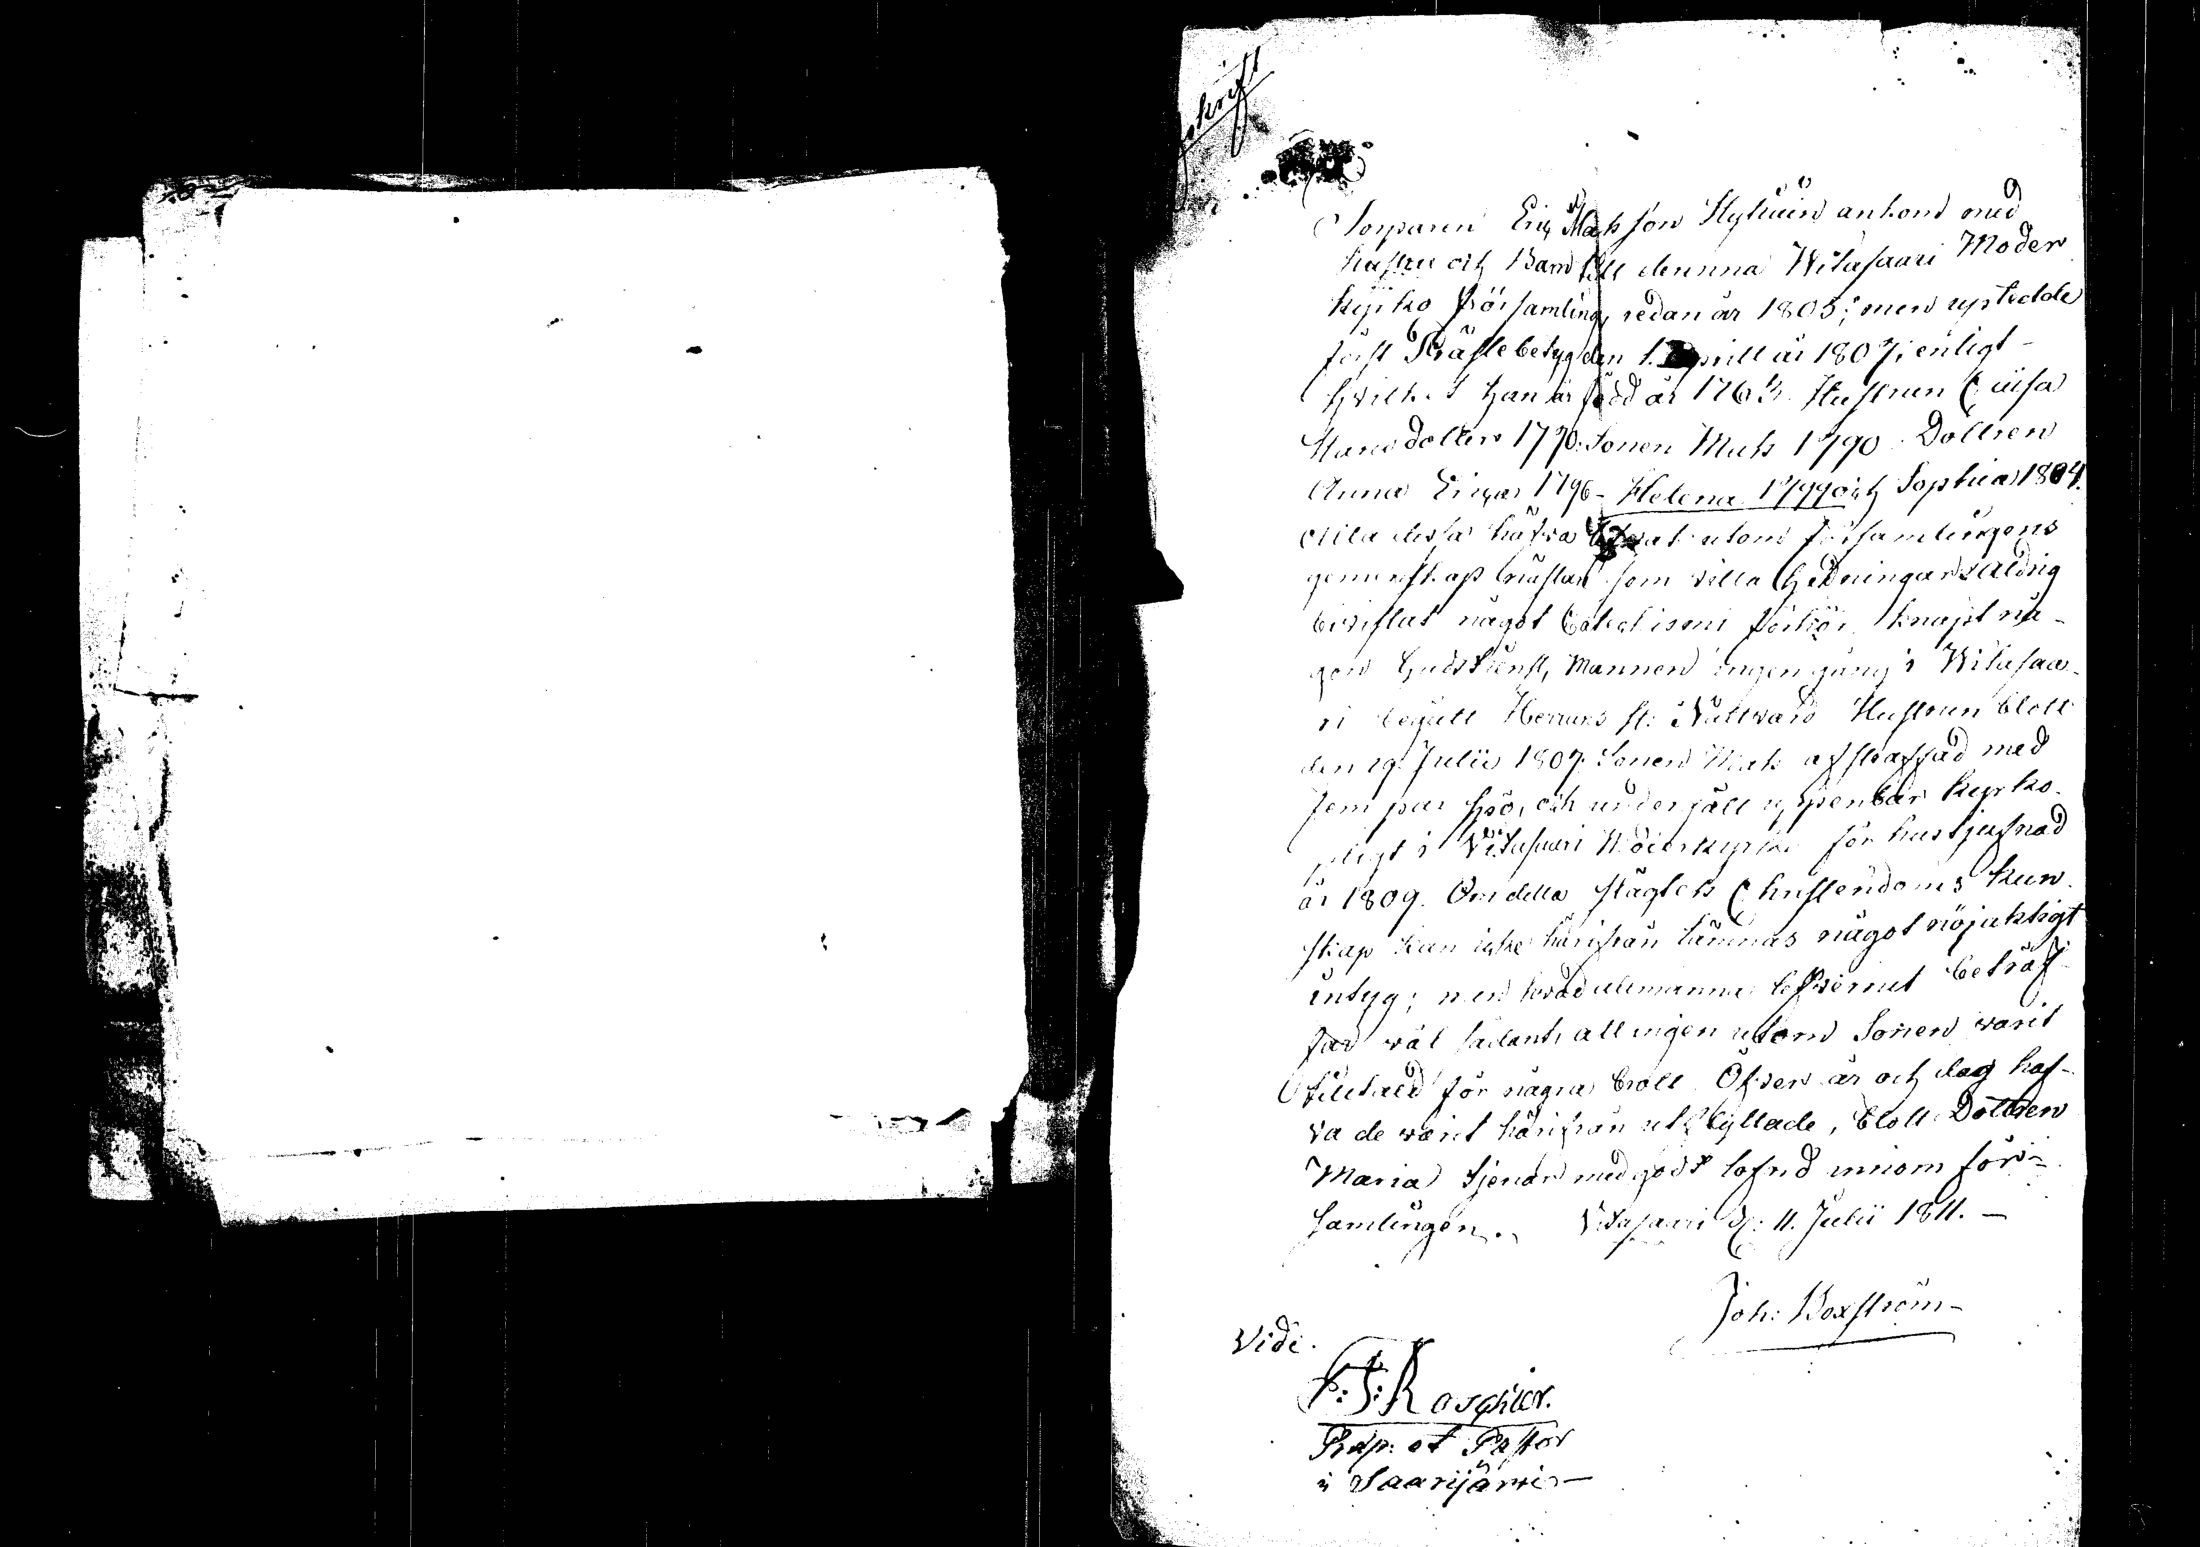 skrift
Torparen Eric Mats son Hytöin ankom med
hustru och Barn till denna Witasaari Moder
kyrko församling redan år 1805; men uptedde
först Prästebetyg den 1. April år 1807; enligt
hvilket han är född år 176 Hustrun Caisa
Hansdotter 1770. Sonen Mats 1790. Dottren
Anna Erica 1796 - Helena 1799 och Sophia 1804.
Alla dessa hafva utom församlingens
gemenskap nästan som villa Hedningar aldrig
bevistat något Catechismi förhör, knapt nå-
gon Gudstienst, Mannen ingen gång i Witasaa-
ri begått Herrans H: Nattvard Hustrun blott
den 19. Julii 1807. Sonen Mats afstraffad med
fem par spö, och undergått uppenbar kyrko-
pligt i Vitasaari Moderkyrka för hustjufnad
år 1809. Om detta slägtets Christendoms kun-
skap kan icke härifrån lämnas något nöjaktigt
intyg; men hvad allmänna lefvernet beträf-
far väl sådant, att ingen utom Sonen varit
tilltald för några brott. Öfver år och dag haf-
va de varit härifrån utflyttade, blott Dottren
Maria tjenar med godt lofrd innom för-
samlingen. Vitasaari d: 11. Julii 1811. -
Joh: Boxström -
Vidi.
F: J: Roschier.
Præp: et Pastor
i Saarijärvi -